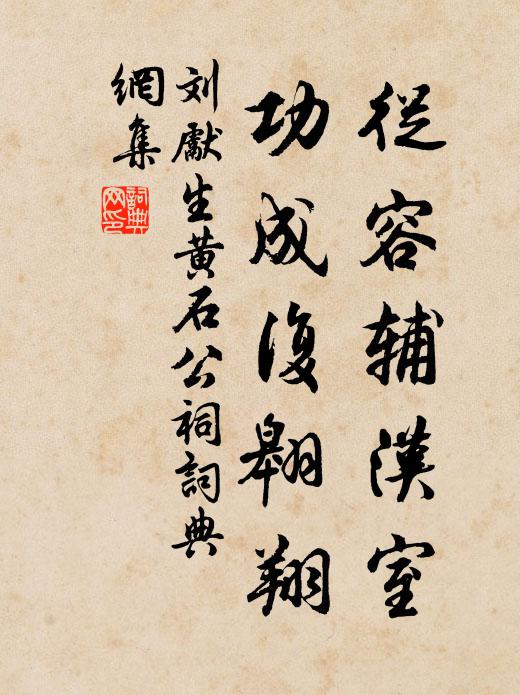 從容辅漢室
功成復翱翔
刘獻生黄石公祠詞典
網集
詞典
网印